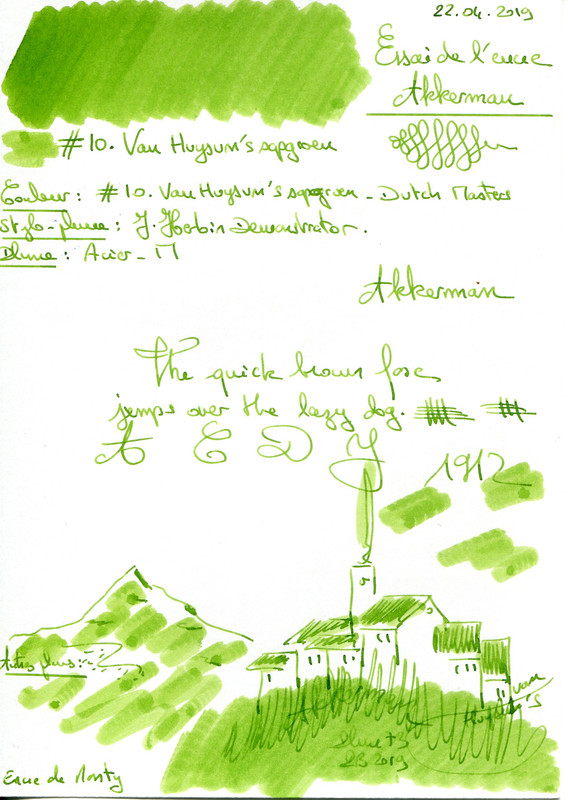 22.04.2019
Essai de l'encre
Akkerman
#10. Van Huysum's sapgroen
Couleur : #10. Van Huysum's sapgroen - Dutch Masters
Stylo-plume : J. Herbin Demonstrator.
Plume : Acier - M
Akkerman
The quick brown fox
jumps over the lazy dog.
A E D J
1912
Autres plumes :
van
Huysum's
Plume +3
2019
Encre de Monty